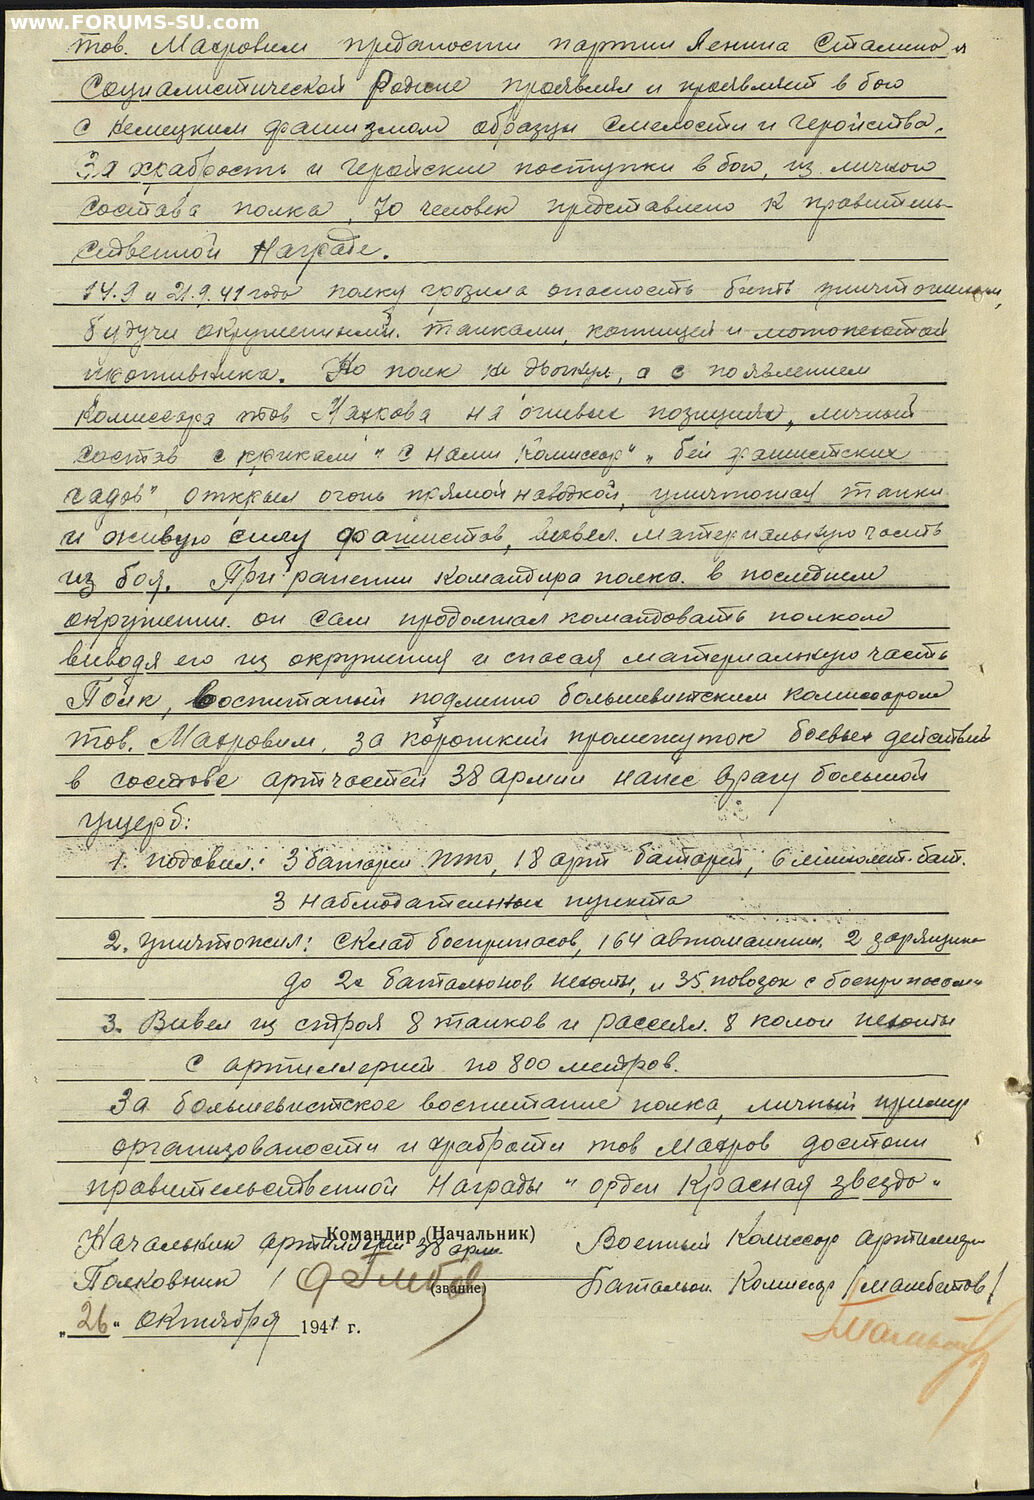 www.FORUMS-SU.com
тов. Махровым преданости партии Ленина Сталина и
Социалистической Родине проявлял и проявляет в бою
с немецким фашизмом образцы смелости и геройства.
За храбрость и геройские поступки в бою, из личного
состава полка, 70 человек представлено к правитель-
ственной Награде.
14.9 и 21.9.41 года полку грозила опасность быть уничтоженым,
будучи окруженными танками, конницей и мотопехотой
противника. Но полк не дрогнул, а с появлением
Комиссара тов на огневых позициях, личный
состав с криками "С нами Комиссар", бей фашистских
гадов", открыл огонь прямой наводкой, уничтожая танки
и живую силу фашистов, вывел материальную часть
из боя. При ранении командира полка в последнем
окружении он сам продолжал командовать полком
выводя его из окружения и спасая материальную часть
Полк, воспитаный подлинно большевитским комиссаром
тов. Махровым, за короткий промежуток боевых действий
в составе артчастей 38 армии нанес врагу большой
ущерб:
1. подавил: 3 батареи ПТО, 18 арт батарей, 6 миномет. бат.
3 наблюдательных пункта
2. уничтожил: склад боеприпасов, 164 автомашин, 2 зарящика
до 2х батальонов пехоты, и 35 повозок с боеприпасами
3. Вывел из строя 8 танков и рассеял 8 колон пехоты
с артиллерией по 800 метров.
За большевистское воспитание полка, личный пример
организованости и храбрости тов Махров достоин
правительственной Награды "орден Красная звезда"
Командир (Начальник)
Начальник артилерии 38 арм. Военный Комиссар артиллери
Полковник / (звание) Батальон. Комиссар /Мамбетов/
„26" октября 1941 г.